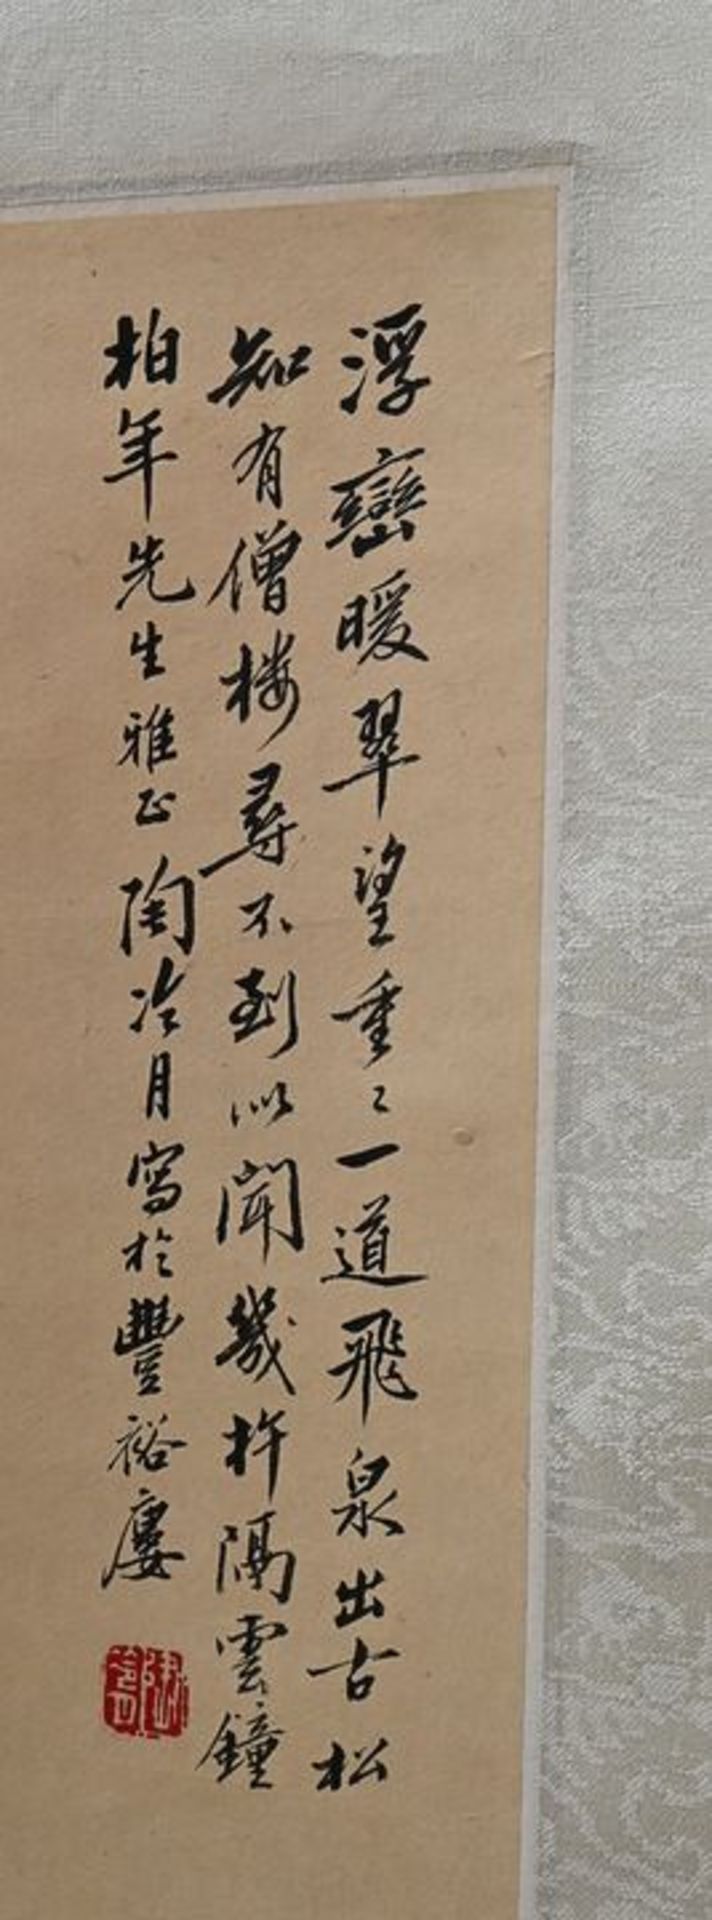 浮巒暖翠望重〻一道飛泉出古松
知有僧楼尋不到似聞幾杵隔雲鐘
柏年先生雅正陶冷月寫於豐裕廔